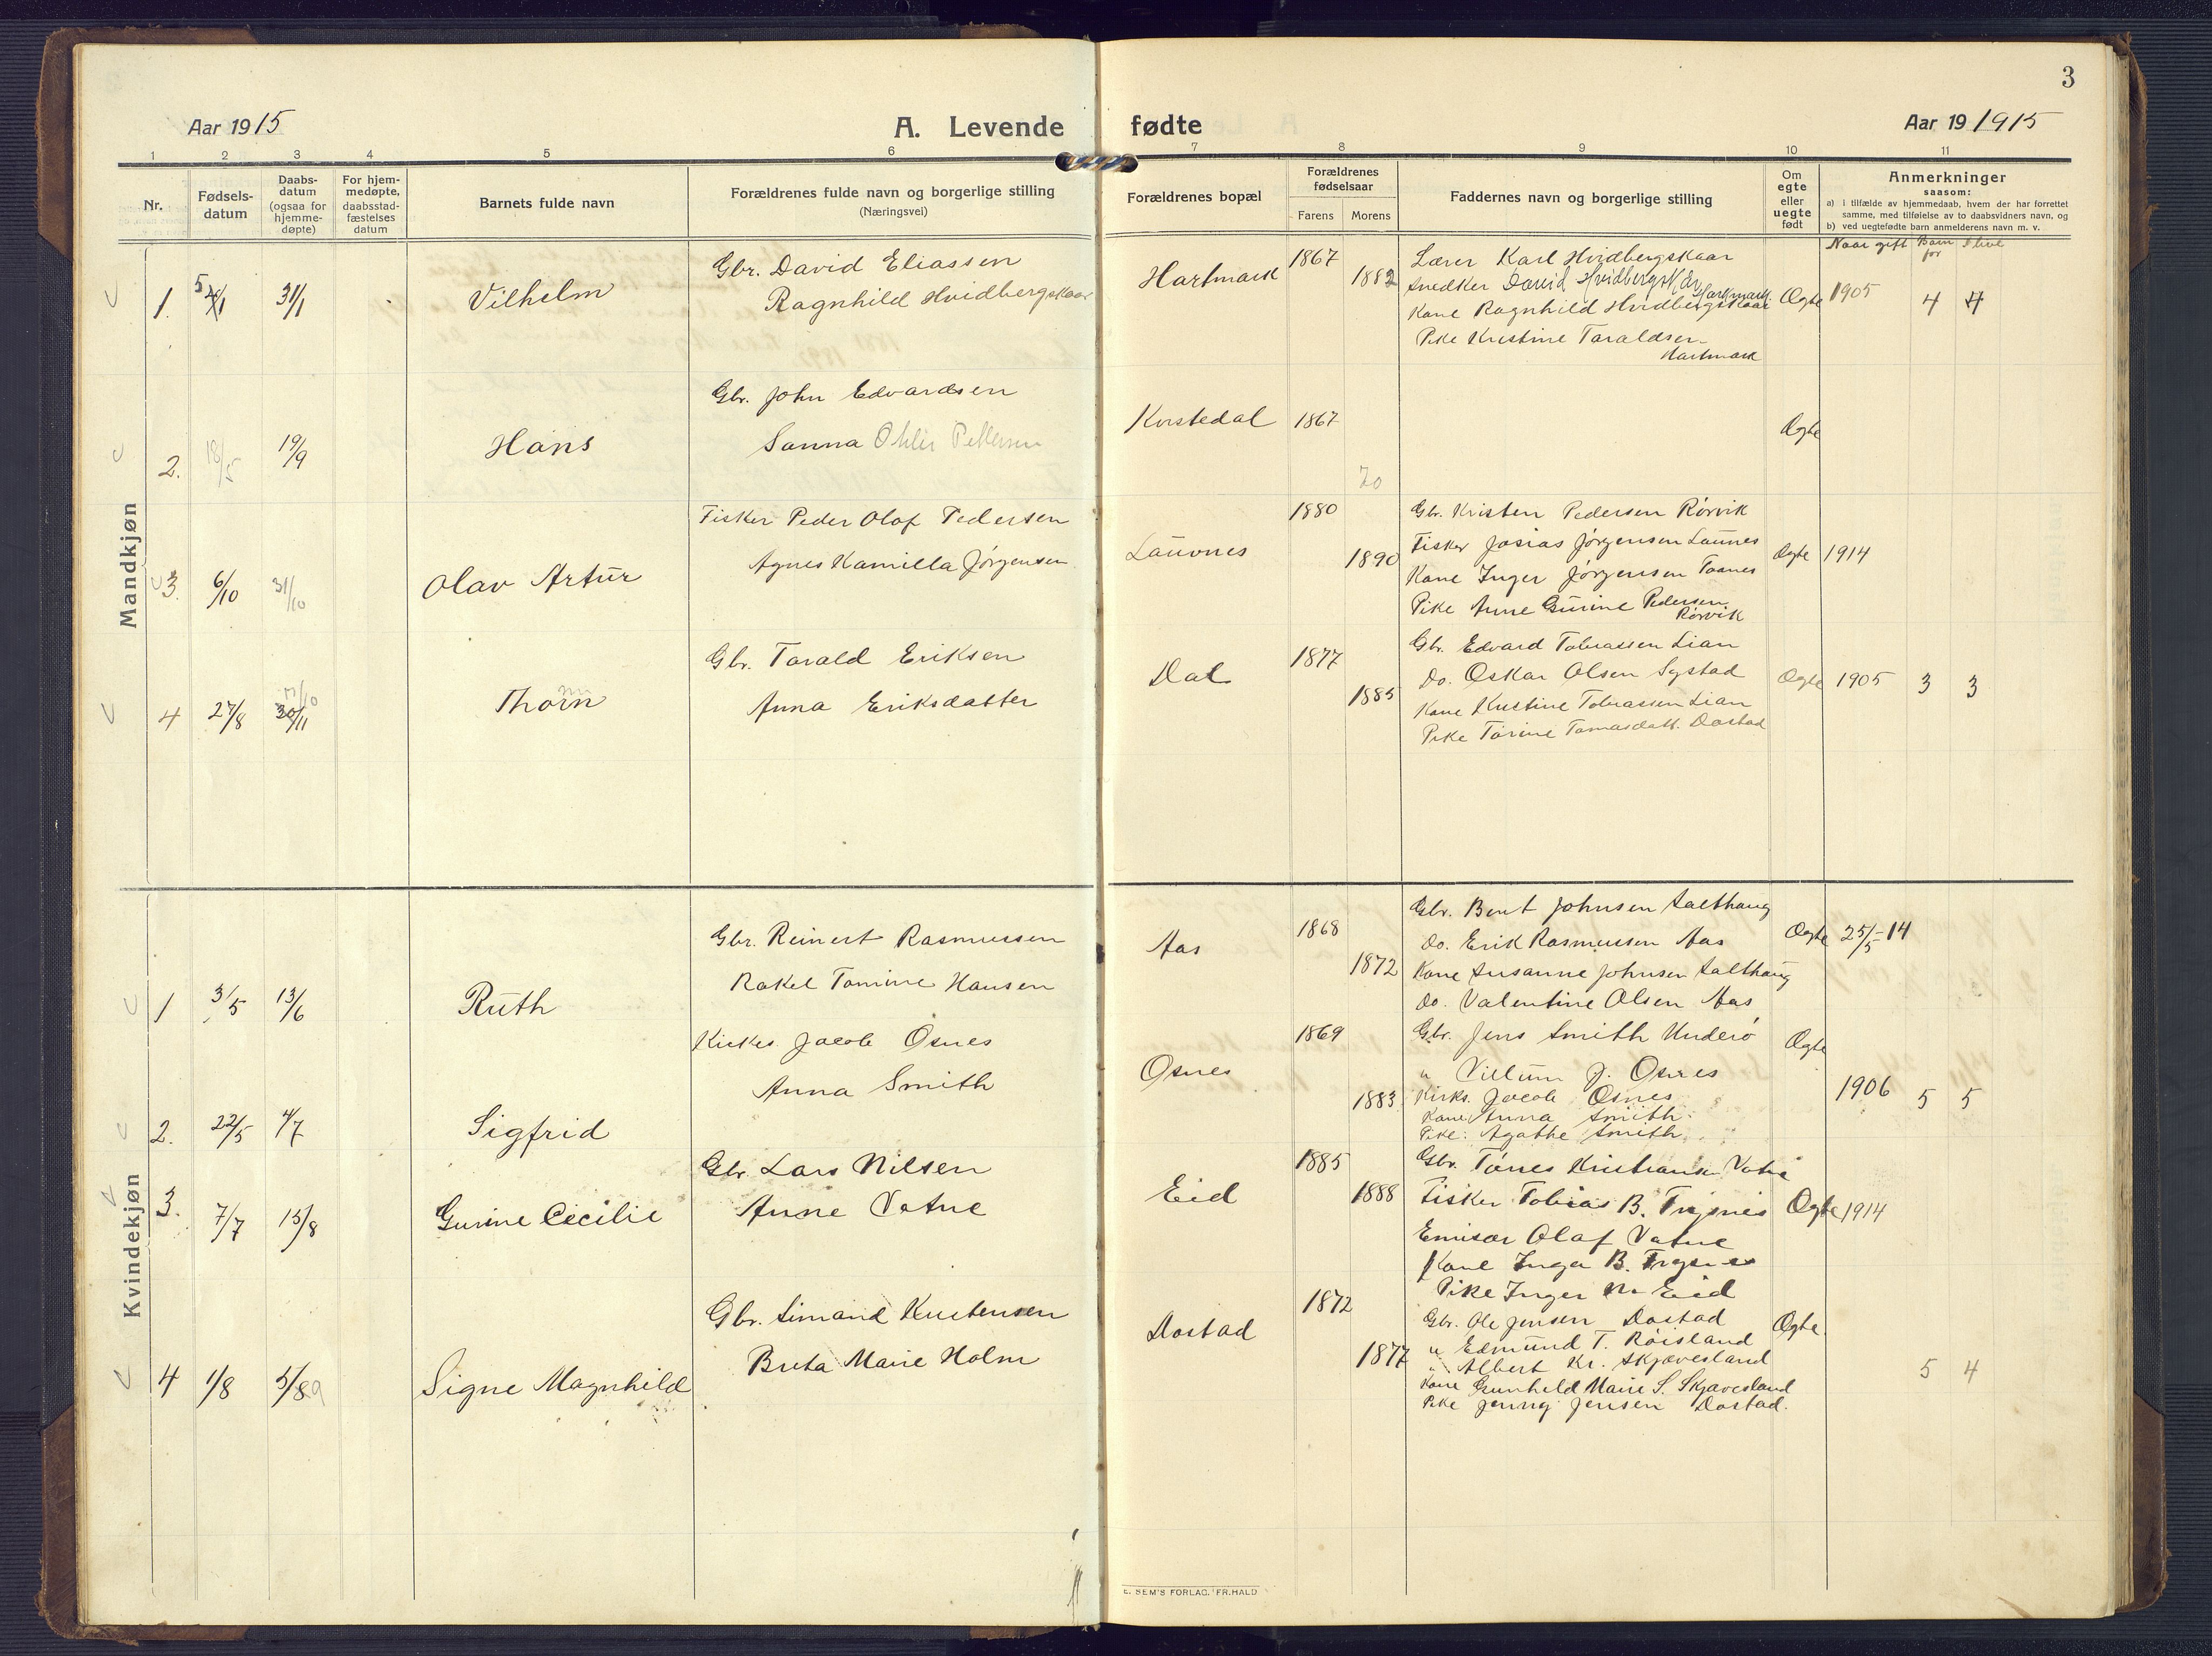 3
Aar 1915
A. Levende fødte
Aar 19 1915
1 2 3 4 5 6 7 8 9 10 11
Nr.
Fødsels-
datum
Daabs-
datum
(ogsaa for
hjemme-
døpte)
For hjem-
medøpte,
daabsstad-
fæstelses
datum
Barnets fulde navn
Forældrenes fulde navn og borgerlige stilling
(Næringsvei)
Forældrenes bopæl
Forældrenes
fødselsaar
Farens Morens
Faddernes navn og borgerlige stilling
Om
egte
eller
uegte
født
Anmerkninger
saasom:
a) i tilfælde av hjemmedaab, hvem der har forrettet
samme, med tilføielse av to daabsvidners navn, og
b) ved uegtefødte barn anmelderens navn m. v.
Naar gift Barn før I live
Mandkjøn
1. 5/1 31/1 Vilhelm
Gbr. David Eliassen
Ragnhild Hvidbergskaar
Hartmark 1867 1882
Lærer Karl Hvidbergskaar
Snedker David Hvidbergskar, Harkmark
Kone Ragnhild Hvidbergskaar
Pike Kristine Taraldsen
Hartmark
Ægte 1905 4 4
2. 18/5 19/9 Hans
Gbr. John Edvardsen
Sanna Pettersen
Korstedal 1867
20
Ægte
3. 6/10 31/10 Olav Artur
Fisker Peder Olaf Pedersen
Agnes Kamilla Jørgensen
Lauvnes 1880 1890
Gbr. Kristen Pedersen Rørvik
Fisker Josias Jørgensen Launes
Kone Inger Jørgensen Taanes
Pike Anne Gurine Pedersen
Rørvik
Ægte 1914
4 27/8 30/11 Thorn
Gbr. Tarald Eriksen
Anna Eriksdatter
Dal 1877 1885
Gbr. Edvard Tobiassen Lian
Do. Oskar Olsen Systad
Kone Kristine Tobiassen Lian
Pike Torine Tomasdatt. Dostad
Ægte 1905 3 3
Kvindekjøn
1 3/5 13/6 Ruth
Gbr. Reinert Rasmussen
Rakel Tomine Hansen
Aas 1868 1872
Gbr. Bent Johnsen Salthaug
Do. Erik Rasmussen Aas
Kone Susanne Johnsen Salthaug
Do. Valentine Olsen Aas
Ægte 25/5-14
2. 22/5 4/7 Sigfrid
Kirkes. Jacob Osnes
Anna Smith
Osnes 1869 1883
Gbr. Jens Smith Underø
" Villum J. Osnes
Kirks. Jacob Osnes
Kone: Anna Smith
Pike: Agathe Smith
Ægte 1906 5 5
3. 7/7 15/8 Gurine Cecilie
Gbr. Lars Nilsen
Anne Vatne
Eid 1885 1888
Gbr. Tønnes Kristiansen Vatne
Fisker Tobias B. Trysnes
Emisær Olaf Vatne
Kone Inga B. Trysnes
Pike Inger N. Eid
Ægte 1914
4 1/8 5/9 Signe Magnhild
Gbr. Simand Kristensen
Breta Marie Holm
Dostad 1872 1877
Gbr. Ole Jensen Dostad
" Edmund T. Røisland
" Albert Kr. Skjævesland
Kone Gunhild Marie S. Skjævesland
Pike Jenny Jensen Dostad.
Ægte 5 4
E. SEM'S FORLAG. FR.HALD